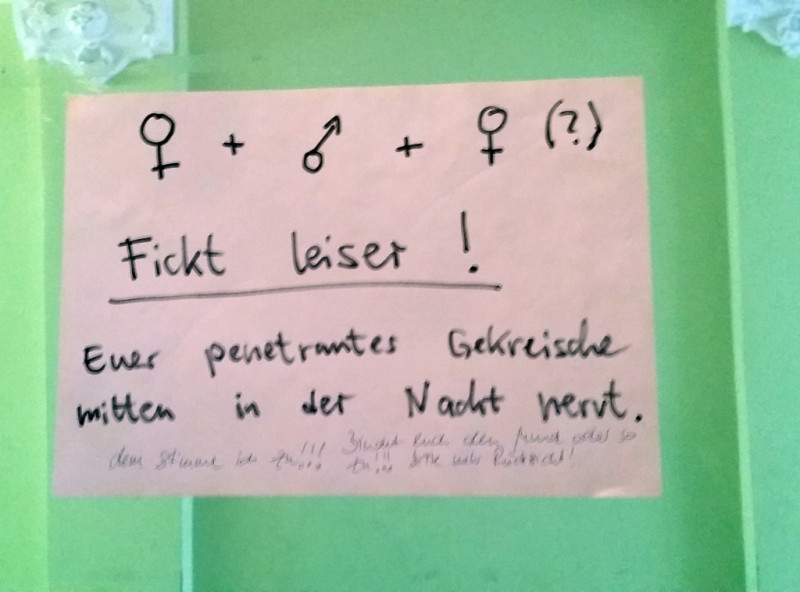 ♀ + ♂ + ♀ (?)
Fickt leiser !
Euer penetrantes Gekreische
mitten in der Nacht nervt.
dem Stimme ich zu!!! Bindet euch den Mund oder so
zu!!! Bitte mehr Rücksicht!